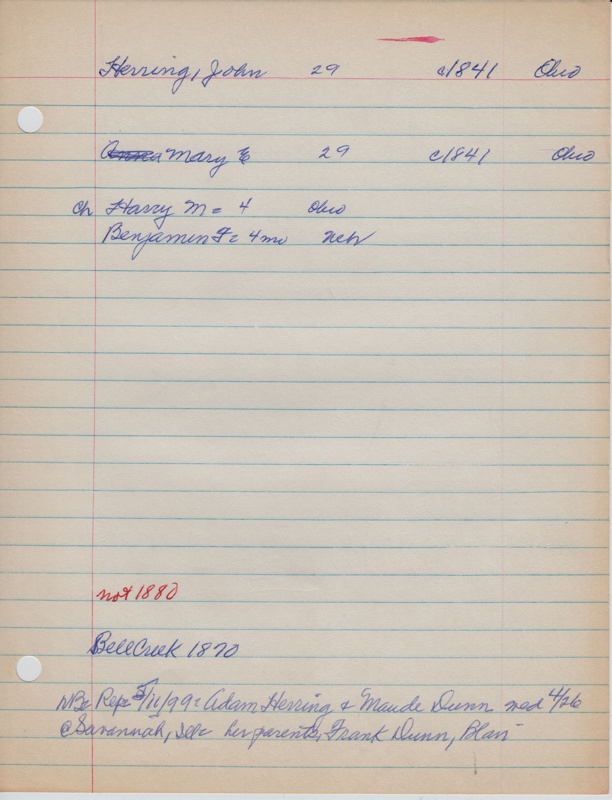 Herring, John 29 c1841 Ohio
Mary E 29 c1841 Ohio
ch Harry M = 4 Ohio
Benjamin F = 4mo Neb
not 1880
Bell Creek 1870
Rep= 5/11/99= Adam Herring & Maude Dunn med 4/26
@ Savannah, her parents, Frank Dunn, Blair